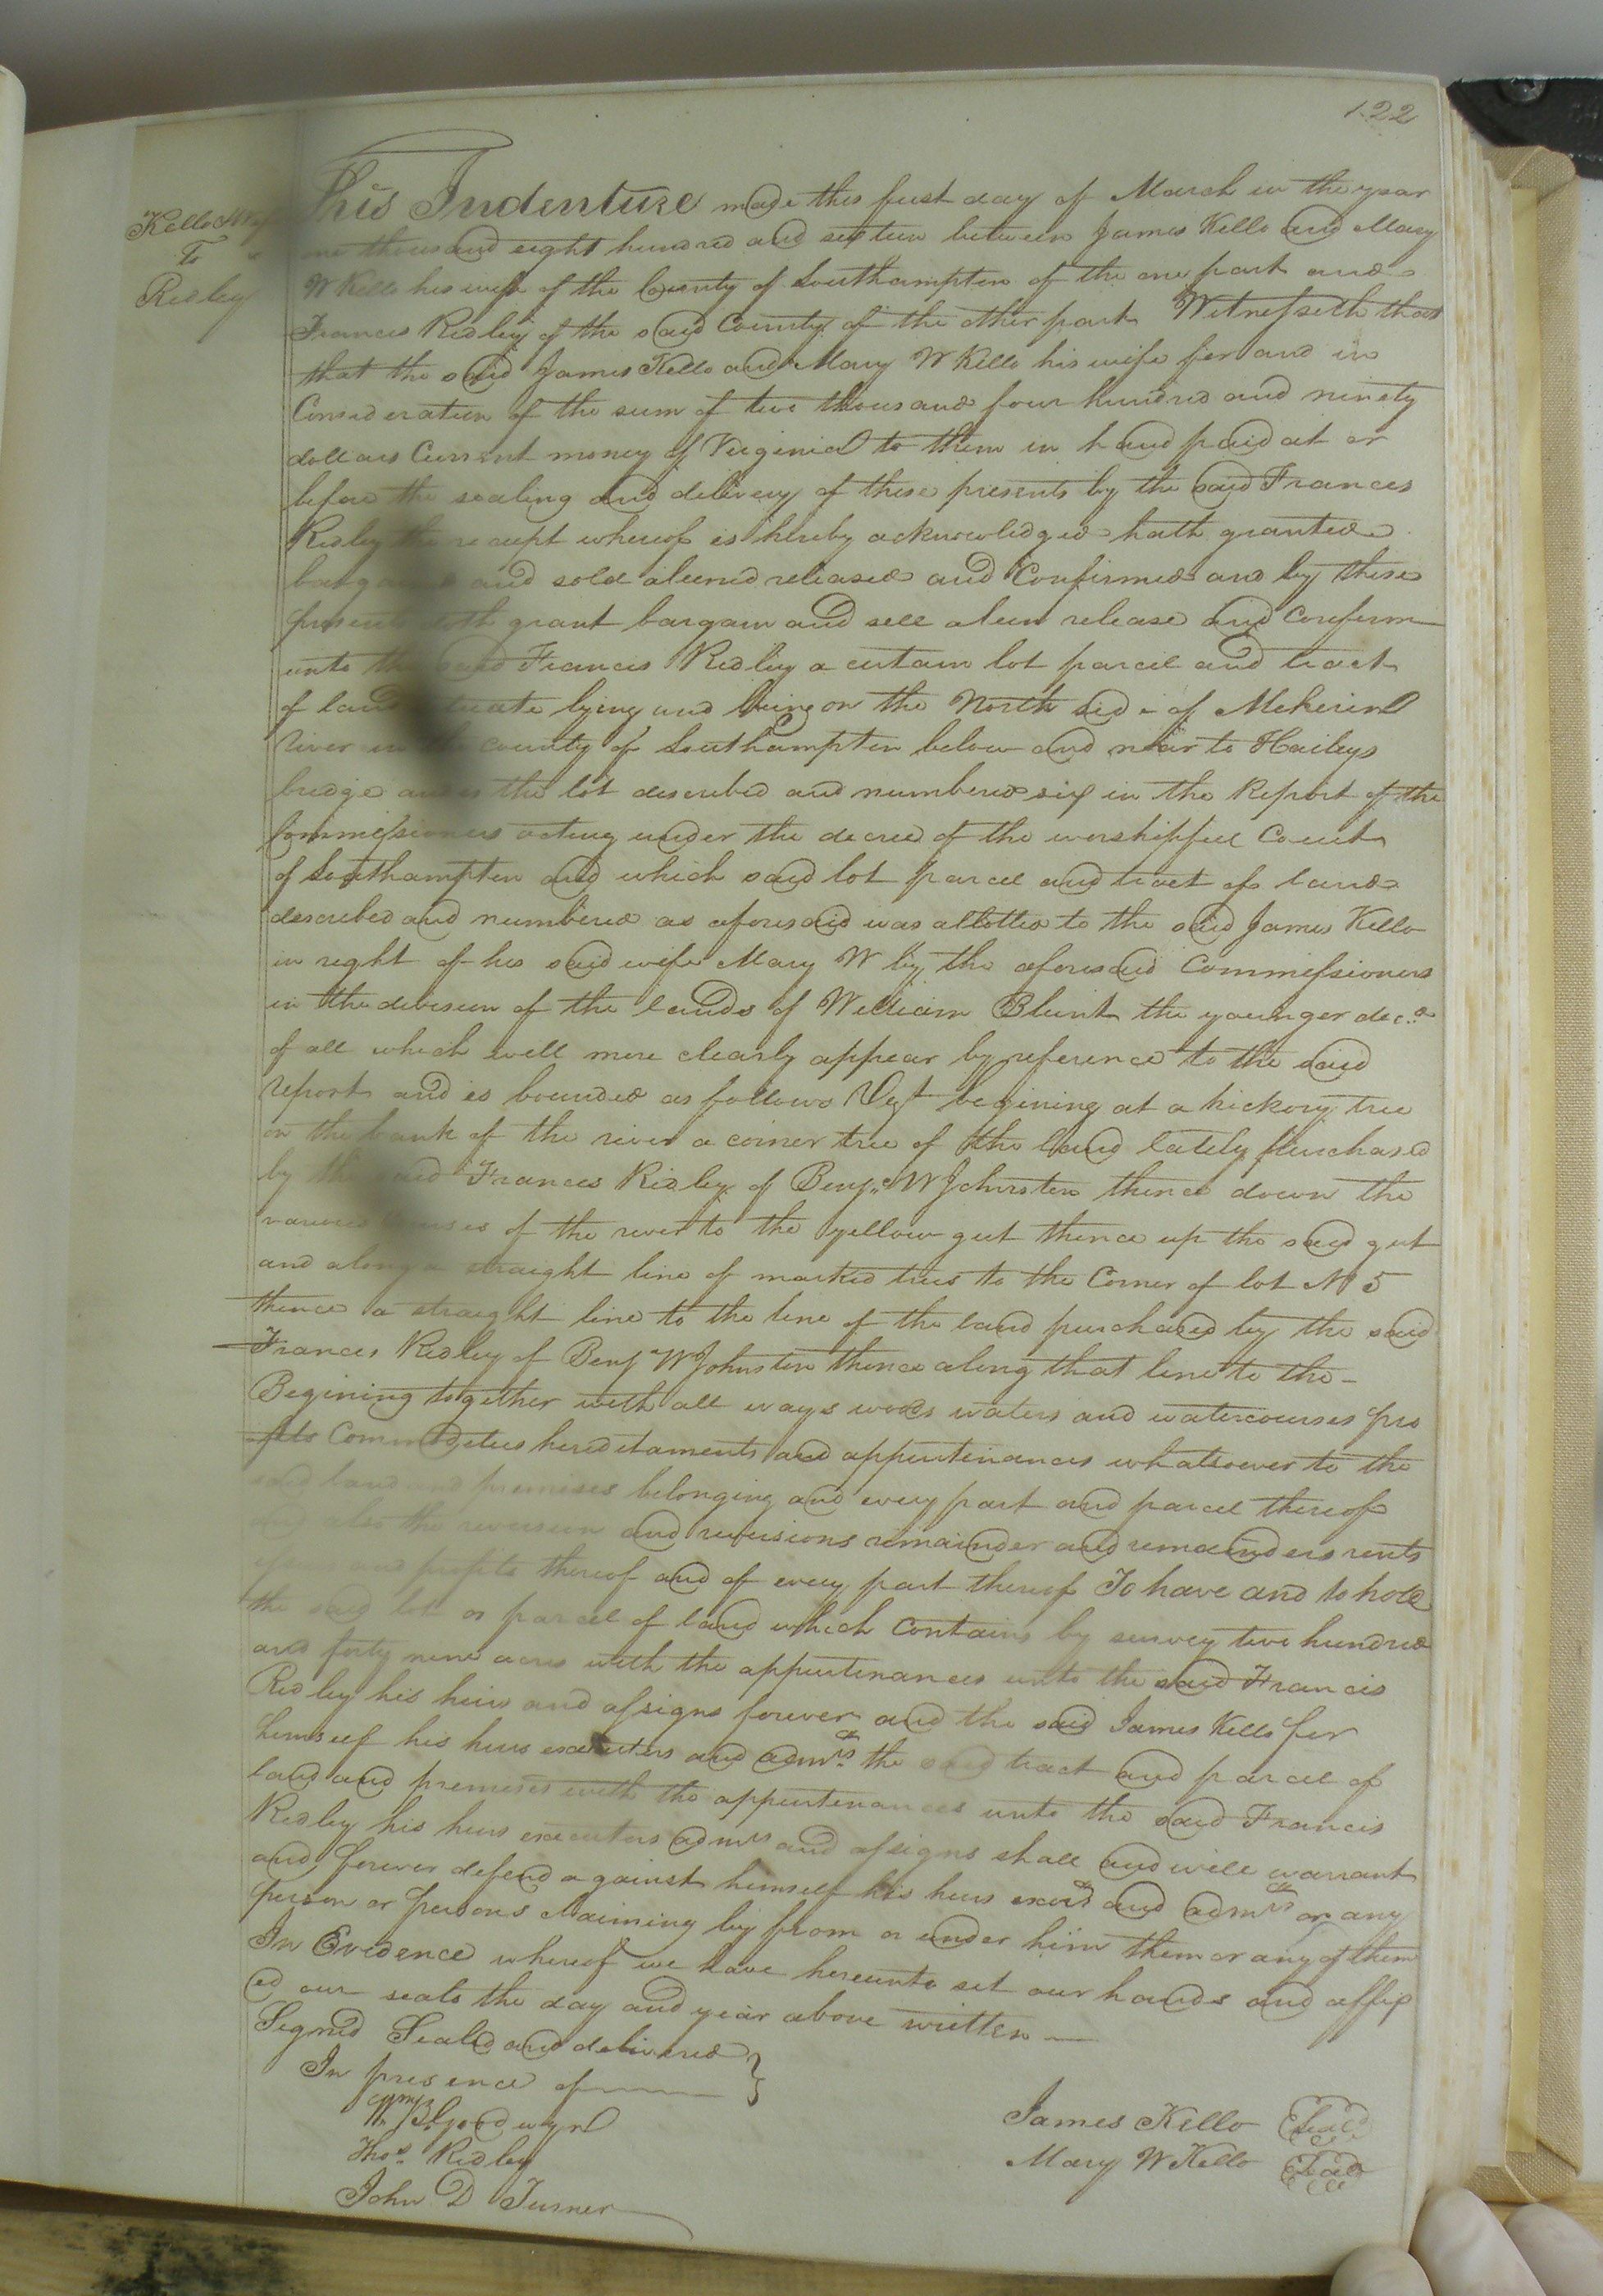 122
Kello & Wife
To
Ridley
This Indenture made this first day of March in the year
one thousand eight hundred and sixteen between James Kello and Mary
W Kello his wife of the County of Southampton of the one part and
Francis Ridley of the said County of the other part Witnesseth that
that the said James Kello and Mary W Kello his wife for and in
Consideration of the sum of two thousand four hundred and ninety
dollars Current money of Virginia to them in hand paid at or
before the sealing and delivery of these presents by the said Frances
Ridley the receipt whereof is hereby acknowledged hath granted
bargained and sold aliened released and Confirmed and by these
presents doth grant bargain and sell alien release and Confirm
unto the said Francis Ridley a certain lot parcel and tract
of land situate lying and being on the North side of Meherin
river in the county of Southampton below and near to Haileys
bridge and is the lot described and numbered six in the Report of the
Commissioners acting under the decree of the worshipful Court
of Southampton and which said lot parcel and tract of land
described and numbered as aforesaid was allotted to the said James Kello
in right of his said wife Mary W by the aforesaid Commissioners
in the division of the lands of William Blunt the younger dec.d
of all which will more clearly appear by reference to the said
report and is bounded as follows Vizt begining at a hickory tree
on the bank of the river a corner tree of the land lately purchased
by the said Frances Ridley of Benj.n W Johnston thence down the
various courses of the river to the yellow gut thence up the said gut
and along a straight line of marked trees to the Corner of lot No 5
thence a straight line to the line of the land purchased by the said
Frances Ridley of Benj W Johnston thence along that line to the
Begining together with all ways woods waters and watercourses pro
fits Commodities hereditaments and appurtinances whatsoever to the
said land and premises belonging and every part and parcel thereof
and also the reversion and reversions remainder and remainders rents
and profits thereof and of every part thereof To have and to hold
the said lot or parcel of land which Contains by survey two hundred
and forty nine acres with the appurtinances unto the said Francis
Ridley his heirs and assigns forever and the said James Kello for
himself his heirs executors and admrs the said tract and parcel of
land and premises with the appurtenances unto the said Francis
Ridley his heirs executors admrs and assigns shall and will warrant
and forever defend against himself his heirs exors and admrs or any
person or persons claiming by from or under him them or any of them
In Evidence whereof we have hereunto set our hands and affix
ed our seals the day and year above written
Signed Sealed and delivered }
In presence of
Wm B Goodwyn
Thos Ridley
John D Turner
James Kello Seal
Mary W Kello Seal